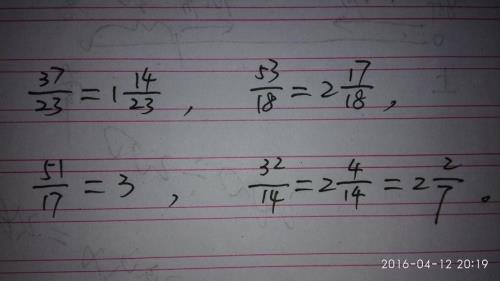 37/23 = 1 14/23 , 53/18 = 2 17/18 ,
51/17 = 3 , 32/14 = 2 4/14 = 2 2/7 。
2016-04-12 20:19